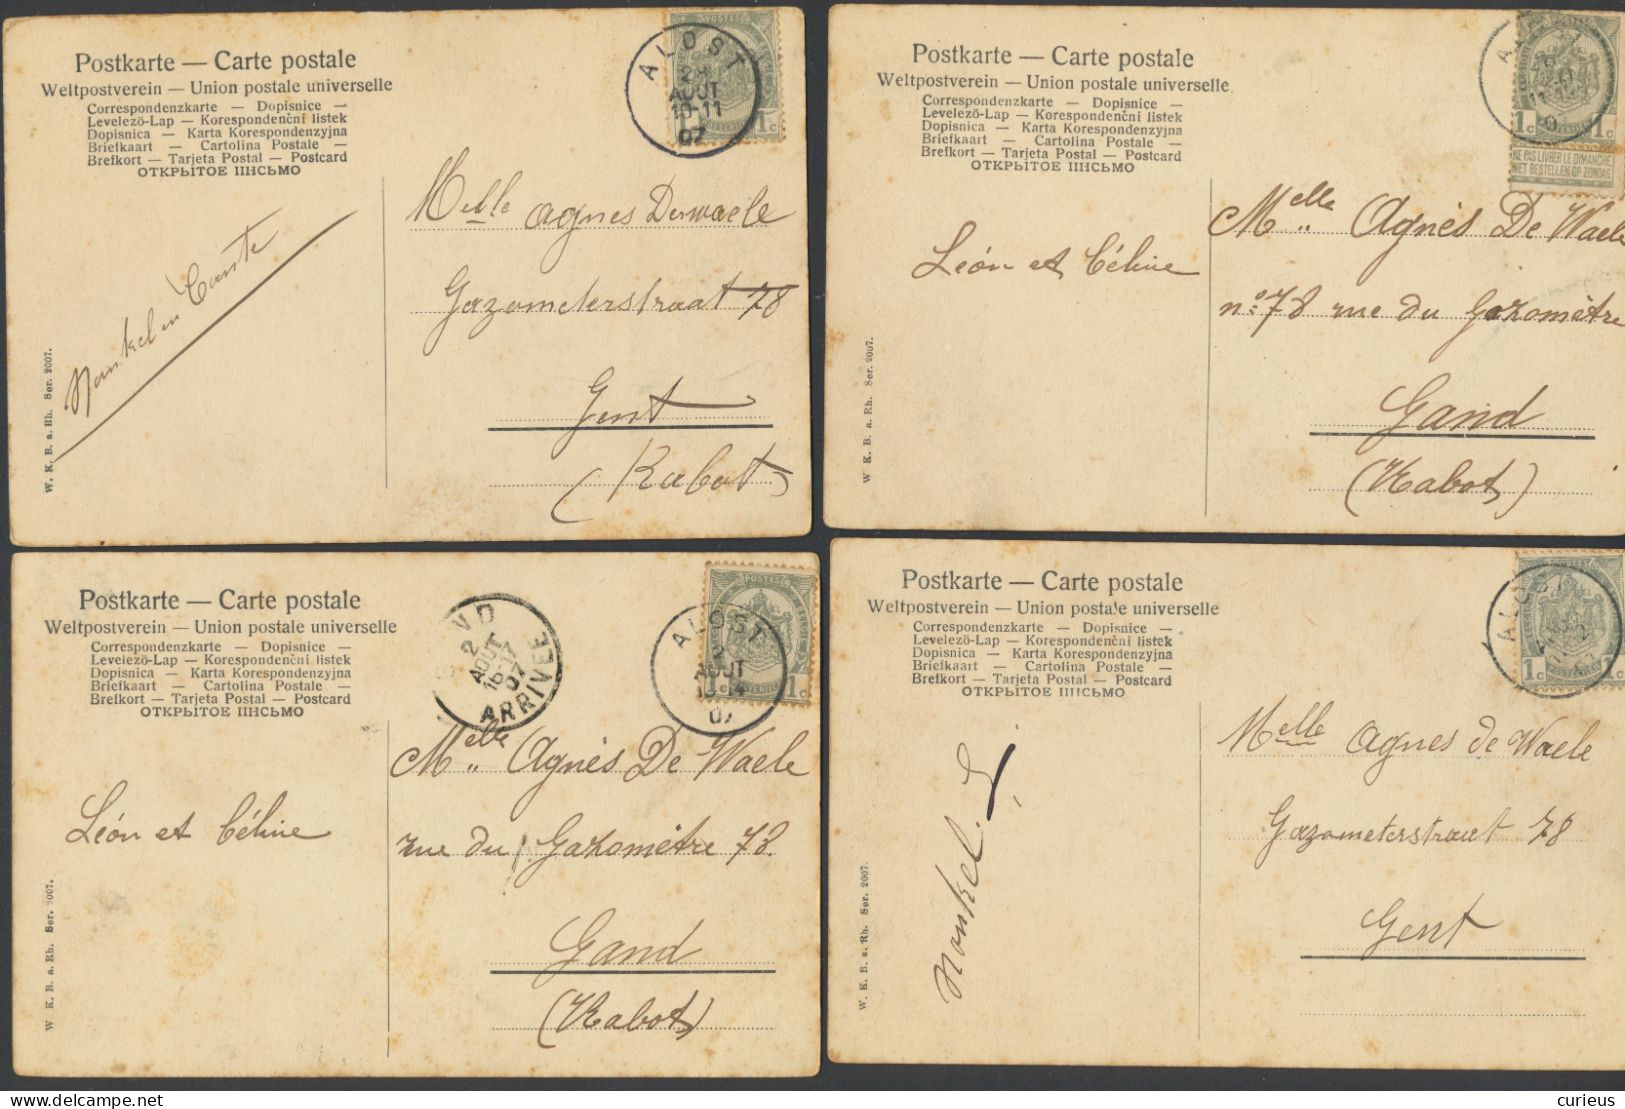 Postkarte — Carte postale
Weltpostverein — Union postale universelle
Correspondenzkarte — Dopisnice —
Levelező-Lap — Korespondenční listek
Dopisnica — Karta Korespondenzyjna
Briefkaart — Cartolina Postale —
Brefkort — Tarjeta Postal — Postcard
ОТКРЫТОЕ ПИСЬМО
POSTES
ALOST
AOUT
10-11
07
1c
Melle Agnes Dewaele
Gazometerstraat 78
Gent
(Rabot)
Nonkel en Tante
W. K. B. a. Rh. Ser. 2007.
Postkarte — Carte postale
Weltpostverein — Union postale universelle
Correspondenzkarte — Dopisnice —
Levelező-Lap — Korespondenční listek
Dopisnica — Karta Korespondenzyjna
Briefkaart — Cartolina Postale —
Brefkort — Tarjeta Postal — Postcard
ОТКРЫТОЕ ПИСЬМО
1c 1c
NE PAS LIVRER LE DIMANCHE
NIET BESTELLEN OP ZONDAG
Melle Agnès De Waele
Léon et Céline
no 78 rue du Gazomètre
Gand
(Rabot)
W. K. B. a. Rh. Ser. 2007.
Postkarte — Carte postale
Weltpostverein — Union postale universelle
Correspondenzkarte — Dopisnice —
Levelező-Lap — Korespondenční listek
Dopisnica — Karta Korespondenzyjna
Briefkaart — Cartolina Postale —
Brefkort — Tarjeta Postal — Postcard
ОТКРЫТОЕ ПИСЬМО
2
AOUT
16-17
07
ARRIVEE
POSTES
ALOST
2
AOUT
07
1c
Melle Agnès De Waele
Léon et Céline
rue du Gazomètre 78.
Gand
(Rabot)
W. K. B. a. Rh. Ser. 2007.
Postkarte — Carte postale
Weltpostverein — Union postale universelle
Correspondenzkarte — Dopisnice —
Levelező-Lap — Korespondenční listek
Dopisnica — Karta Korespondenzyjna
Briefkaart — Cartolina Postale —
Brefkort — Tarjeta Postal — Postcard
ОТКРЫТОЕ ПИСЬМО
POSTES
ALOST
1c 1c
Melle Agnes de Waele
Gazometerstraat 78
Gent
Nonkel.
W. K. B. a. Rh. Ser. 2007.
curieus